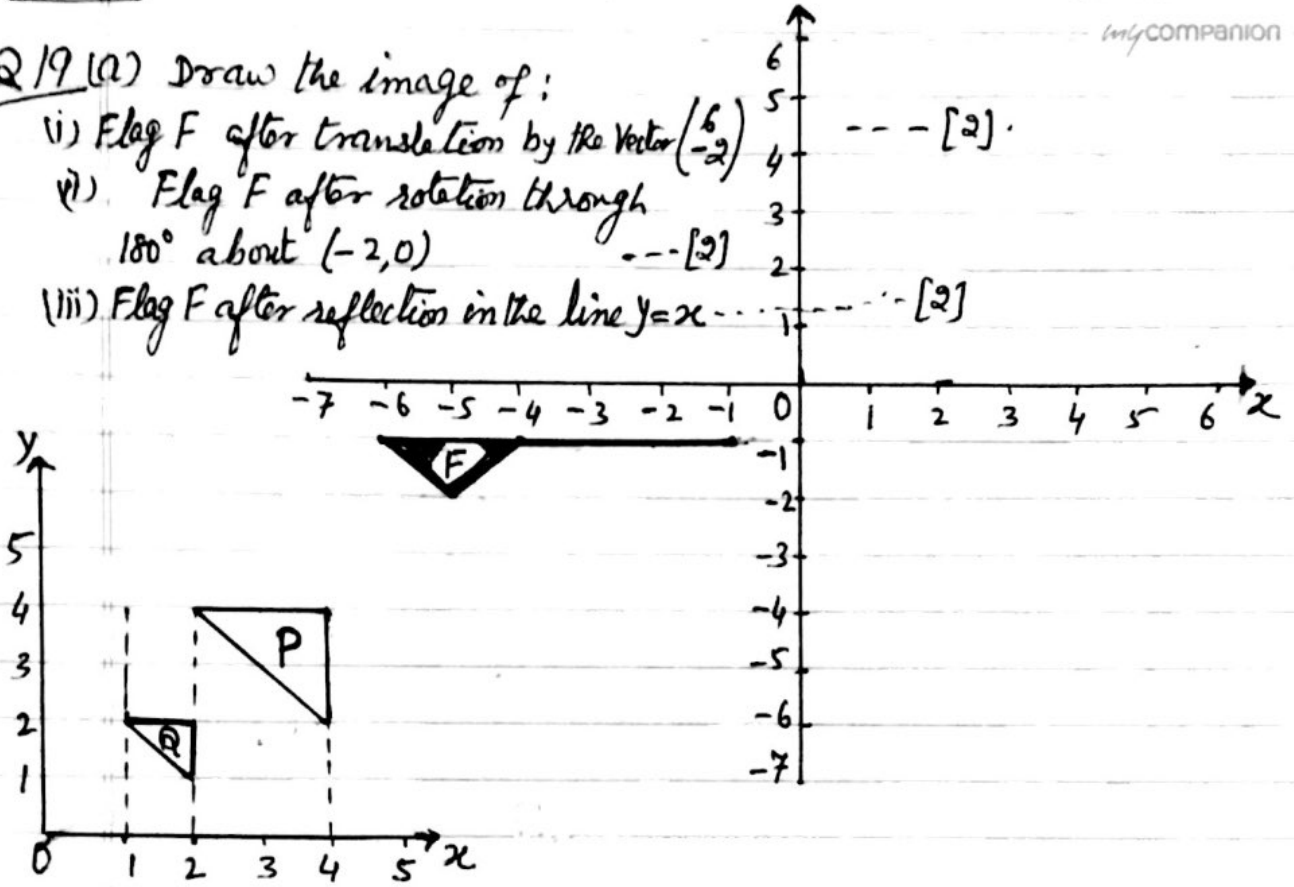 mycompanion
Q19 (a) Draw the image of :
(i) Flag F after translation by the Vector (6 -2) --- [2].
(ii) Flag F after rotation through
180° about (-2,0) ---[2]
(iii) Flag F after reflection in the line y=x ......... [2]
6
5
4
3
2
1
-7 -6 -5 -4 -3 -2 -1 0 1 2 3 4 5 6 x
F
-1
-2
-3
-4
-5
-6
-7
y
5
4
3
2
1
P
Q
0 1 2 3 4 5 x